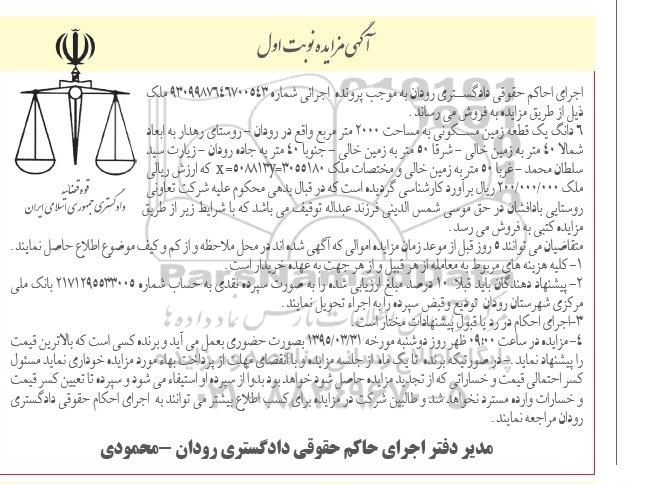 آگهی مزایده نوبت اول
قوه قضائیه
دادگستری جمهوری اسلامی ایران
اجرای احاکم حقوقی دادگستری رودان به موجب پرونده اجرائی شماره ۹۳۰۹۹۸۷۶۴۶۷۰۰۵۴۳ ملک
ذیل از طریق مزایده به فروش می رساند.
۶ دانگ یک قطعه زمین مسکونی به مساحت ۲۰۰۰ متر مربع واقع در رودان - روستای رهدار به ابعاد
شمالا ۴۰ متر به زمین خالی - شرقا ۵۰ متر به زمین خالی - جنوبا ۴۰ متر به جاده رودان - زیارت سید
سلطان محمد - غربا ۵۰ متر به زمین خالی و مختصات ملک x=۵۰۸۸۱۳y=۳۰۵۵۱۸۰ که ارزش ریالی
ملک ۲۰۰/۰۰۰/۰۰۰ ریال برآورد کارشناسی گردیده است که در قبال بدهی محکوم علیه شرکت تعاونی
روستایی بادافشان در حق موسی شمس الدینی فرزند عبداله توقیف می باشد که با شرایط زیر از طریق
مزایده کتبی به فروش می رسد.
متقاضیان می توانند ۵ روز قبل از موعد زمان مزایده اموالی که آگهی شده اند در محل ملاحظه و از کم و کیف موضوع اطلاع حاصل نمایند.
۱- کلیه هزینه های مربوط به معامله از هر قبیل و از هر جهت به عهده خریدار است.
۲- پیشنهاد دهندگان باید قبلا ۱۰ درصد مبلغ ارزیابی شده را به صورت سپرده نقدی به حساب شماره ۲۱۷۱۲۹۵۵۳۳۰۰۵ بانک ملی
مرکزی شهرستان رودان تودیع و قبض سپرده را به اجراء تحویل نمایند.
۳-اجرای احکام در رد یا قبول پیشنهادات مختار است.
۴- مزایده در ساعت ۰۹:۰۰ ظهر روز دوشنبه مورخه ۱۳۹۵/۰۳/۳۱ بصورت حضوری بعمل می آید و برنده کسی است که بالاترین قیمت
را پیشنهاد نماید. -در صورتیکه برنده تا یک ماه از جلسه مزایده و با انقضای مهلت از پرداخت بهاء مورد مزایده خودداری نماید مسئول
کسر احتمالی قیمت و خساراتی که از تجدید مزایده حاصل شود خواهد بود بدوا از سپرده او استیفاء می شود و سپرده تا تعیین کسر قیمت
و خسارات وارده مسترد نخواهد شد و طالبین شرکت در مزایده برای کسب اطلاع بیشتر می توانند به اجرای احکام حقوقی دادگستری
رودان مراجعه نمایند.
مدیر دفتر اجرای حاکم حقوقی دادگستری رودان -محمودی